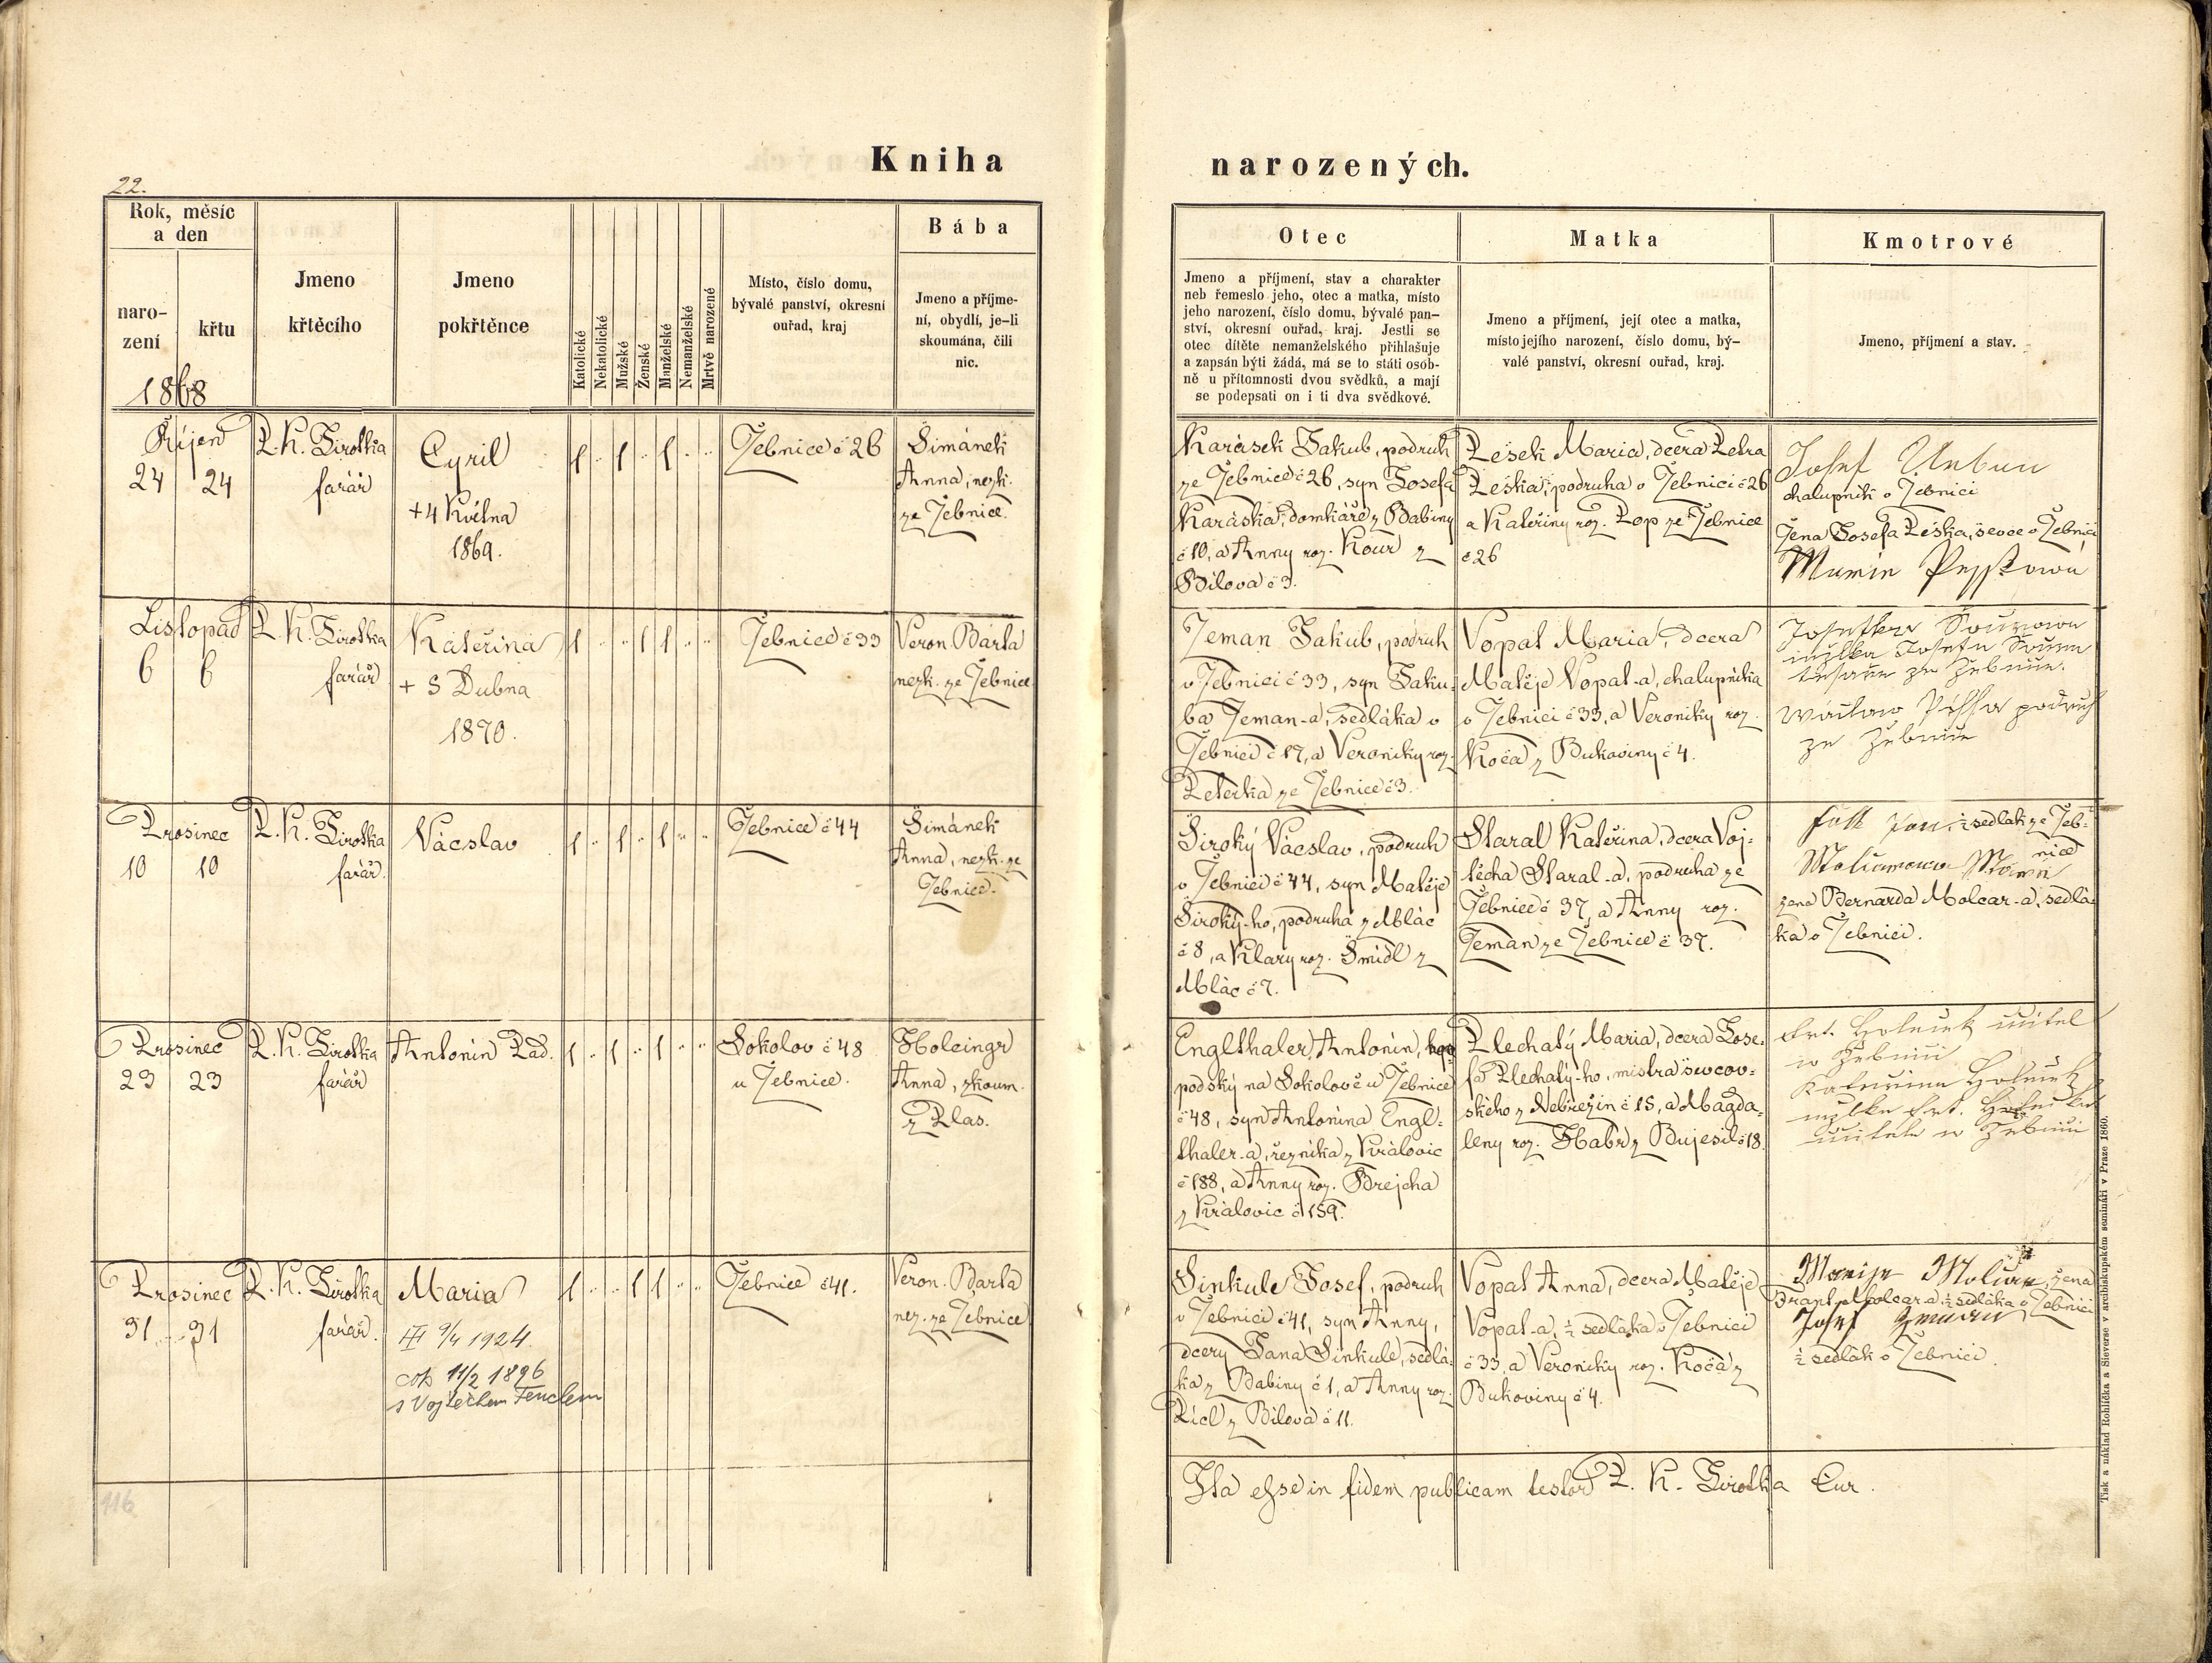 Kniha narozených.
22.
Rok, měsíc a den
narození
křtu
1868
Jmeno křtěcího
Jmeno pokřtěnce
Katolické
Nekatolické
Mužské
Ženské
Manželské
Nemanželské
Mrtvě narozené
Místo, číslo domu,
bývalé panství, okresní
ouřad, kraj
Bába
Jmeno a příjme-
ní, obydlí, je-li
skoumána, čili
nic.
Otec
Jmeno a příjmení, stav a charakter
neb řemeslo jeho, otec a matka, místo
jeho narození, číslo domu, bývalé pan-
ství, okresní ouřad, kraj. Jestli se
otec dítěte nemanželského přihlašuje
a zapsán býti žádá, má se to státi osob-
ně u přítomnosti dvou svědků, a mají
se podepsati on i ti dva svědkové.
Matka
Jmeno a příjmení, její otec a matka,
místo jejího narození, číslo domu, bý-
valé panství, okresní ouřad, kraj.
Kmotrové
Jmeno, příjmení a stav.
Říjen
24 24
P. K. Sirotka
farář
Cyril
+ 4 Května
1869.
Žebnice č 26
Šimánek
Anna, nezk.
ze Žebnice.
Karásek Jakub, podruh
ze Žebnice č 26, syn Josefa
Karáska, domkáře z Babiny
č 10, a Anny roz. Kour z
Bílova č 3.
Pešek Maria, dcera Petra
Peška, podruha v Žebnici č 26
a Kateřiny roz. Pop ze Žebnice
č 26
Josef Urban
chalupník v Žebnici
žena Josefa Peška, ševce v Žebnici
Marie
Listopad
6 6
P. K. Sirotka
farář
Kateřina
+ 5 Dubna
1870.
Žebnice č 33
Veron. Barta
nezk. ze Žebnice
Zeman Jakub, podruh
v Žebnici č 33, syn Jaku-
ba Zeman-a, sedláka v
Žebnici č 17, a Veroniky roz.
Peterka ze Žebnice č 3.
Vopat Maria, dcera
Matěje Vopat-a, chalupníka
v Žebnici č 33, a Veroniky roz.
Koča z Bukoviny č 4.
podruh
Prosinec
10 10
P. K. Sirotka
farář.
Vácslav
Žebnice č 44
Šimánek
Anna, nezk. ze
Žebnice.
Široký Vácslav, podruh
v Žebnici č 44, syn Matěje
Široký-ho, podruha z Mlác
č 8, a Klary roz. Šmídl z
Mlác č 7.
Staral Kateřina, dcera Voj-
těcha Staral-a, podruha ze
Žebnice č 37, a Anny roz.
Zeman ze Žebnice č 37.
½ sedlák ze Žeb-
nice
žena Bernarda Molcar-a, sedlá-
ka v Žebnici.
Prosinec
23 23
P. K. Sirotka
farář
Antonín Pad.
Sokolov č 48
u Žebnice.
Holeingr
Anna, zkoum.
z Plas.
Englthaler Antonín, hos-
podský na Sokolově u Žebnice
č 48, syn Antonína Engl-
thaler-a, řezníka z Královic
č 188, a Anny roz. Brejcha
z Královic č 159.
Plechatý Maria, dcera Jose-
fa Plechatý-ho, mistra ševcov-
ského z Nebřezin č 15, a Magda-
leny roz. Habr z Bujesil č 18.
Prosinec
31 31
P. K. Sirotka
farář.
Maria
9/4 1924.
cop. 11/2 1896
s Vojtěchem Fenclem
Žebnice č 41.
Veron. Barta
nez. ze Žebnice
Sinkule Josef, podruh
v Žebnici č 41, syn Anny,
dcery Jana Sinkule, sedlá-
ka z Babiny č 1, a Anny roz.
Picl z Bílova č 11.
Vopat Anna, dcera Matěje
Vopat-a, ½ sedláka v Žebnici
č 33, a Veroniky roz. Koča z
Bukoviny č 4.
žena
Frant. Molcar-a ½ sedláka v Žebnici
Josef Zeman
½ sedlák v Žebnici.
Ita esse in fidem publicam testor P. K. Sirotka Cur.
116
Tisk a náklad Rohlíčka a Sieverse v arcibiskupském semináři v Praze 1860.